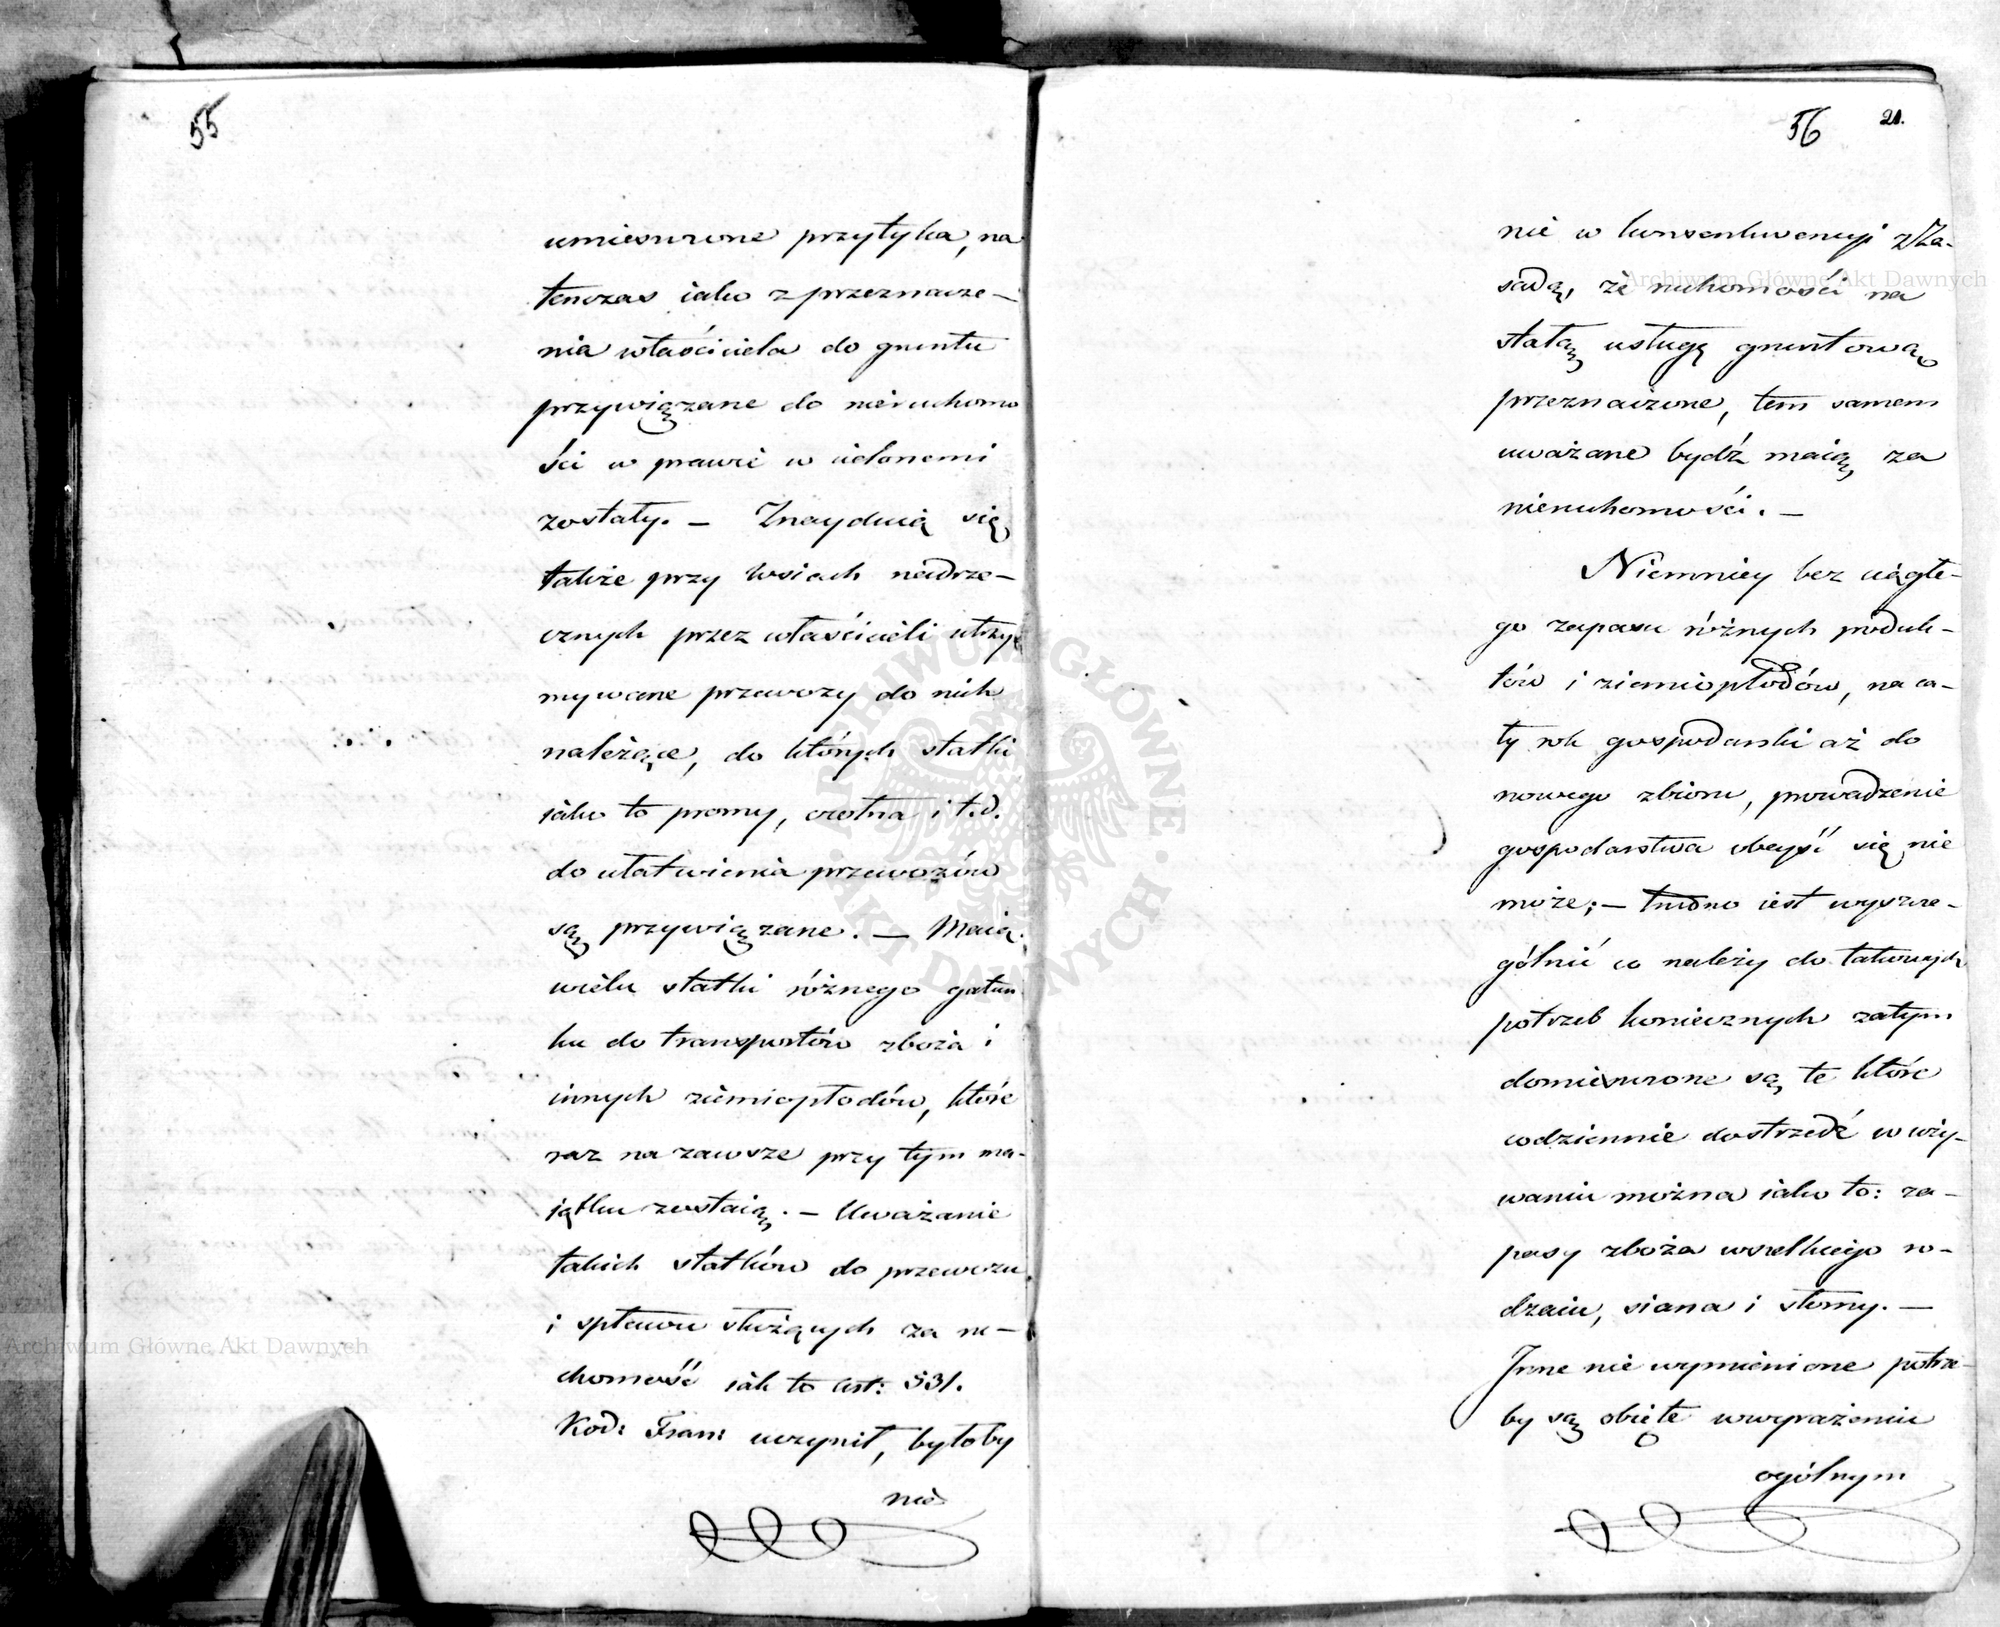 55
umieszczone przytyka, na
tenczas iako z przeznacze-
nia właściciela do gruntu
przywiązane do nieruchomo
ści w prawie w cielonemi
zostały. — Znayduią się
także przy wsiach nadrze-
cznych przez właścicieli utrzy
mywane przewozy do nich
należące, do których statki
iako to promy, czołna i t.d.
do ułatwienia przewozów
są przywiązane. — Maią
wielu statki różnego gatun
ku do transportów zboża i
innych ziemiopłodów, które
raz na zawsze przy tym ma-
iątku zostaią. — Uważanie
takich statków do przewozu
i spławu służących za ru-
chomość iak to Art: 531.
Kod: Fran: uczynił, byłoby
nie
56 21.
nie w konsenkwencyi z Za-
sadą, że ruchomości na
stałą usługę gruntową
przeznaczone, tem samem
uważane bydź maią za
nieruchomości. —
Niemniey bez ciągłe-
go zapasu różnych produk-
tów i ziemiopłodów, na ca-
ły rok gospodarski aż do
nowego zbioru, prowadzenie
gospodarstwa obeyść się nie
może; — trudno iest wyszcze-
gólnić co należy do takowych
potrzeb koniecznych zatym
domieszczone są te które
codziennie dostrzedz w uży-
waniu można iako to: za-
pasy zboża wszelkiego ro-
dzaiu, siana i słomy. —
Inne nie wymienione potrze-
by są obięte w wyrażeniu
ogólnym
Archiwum Główne Akt Dawnych
Archiwum Główne Akt Dawnych
ARCHIWUM GŁÓWNE AKT DAWNYCH